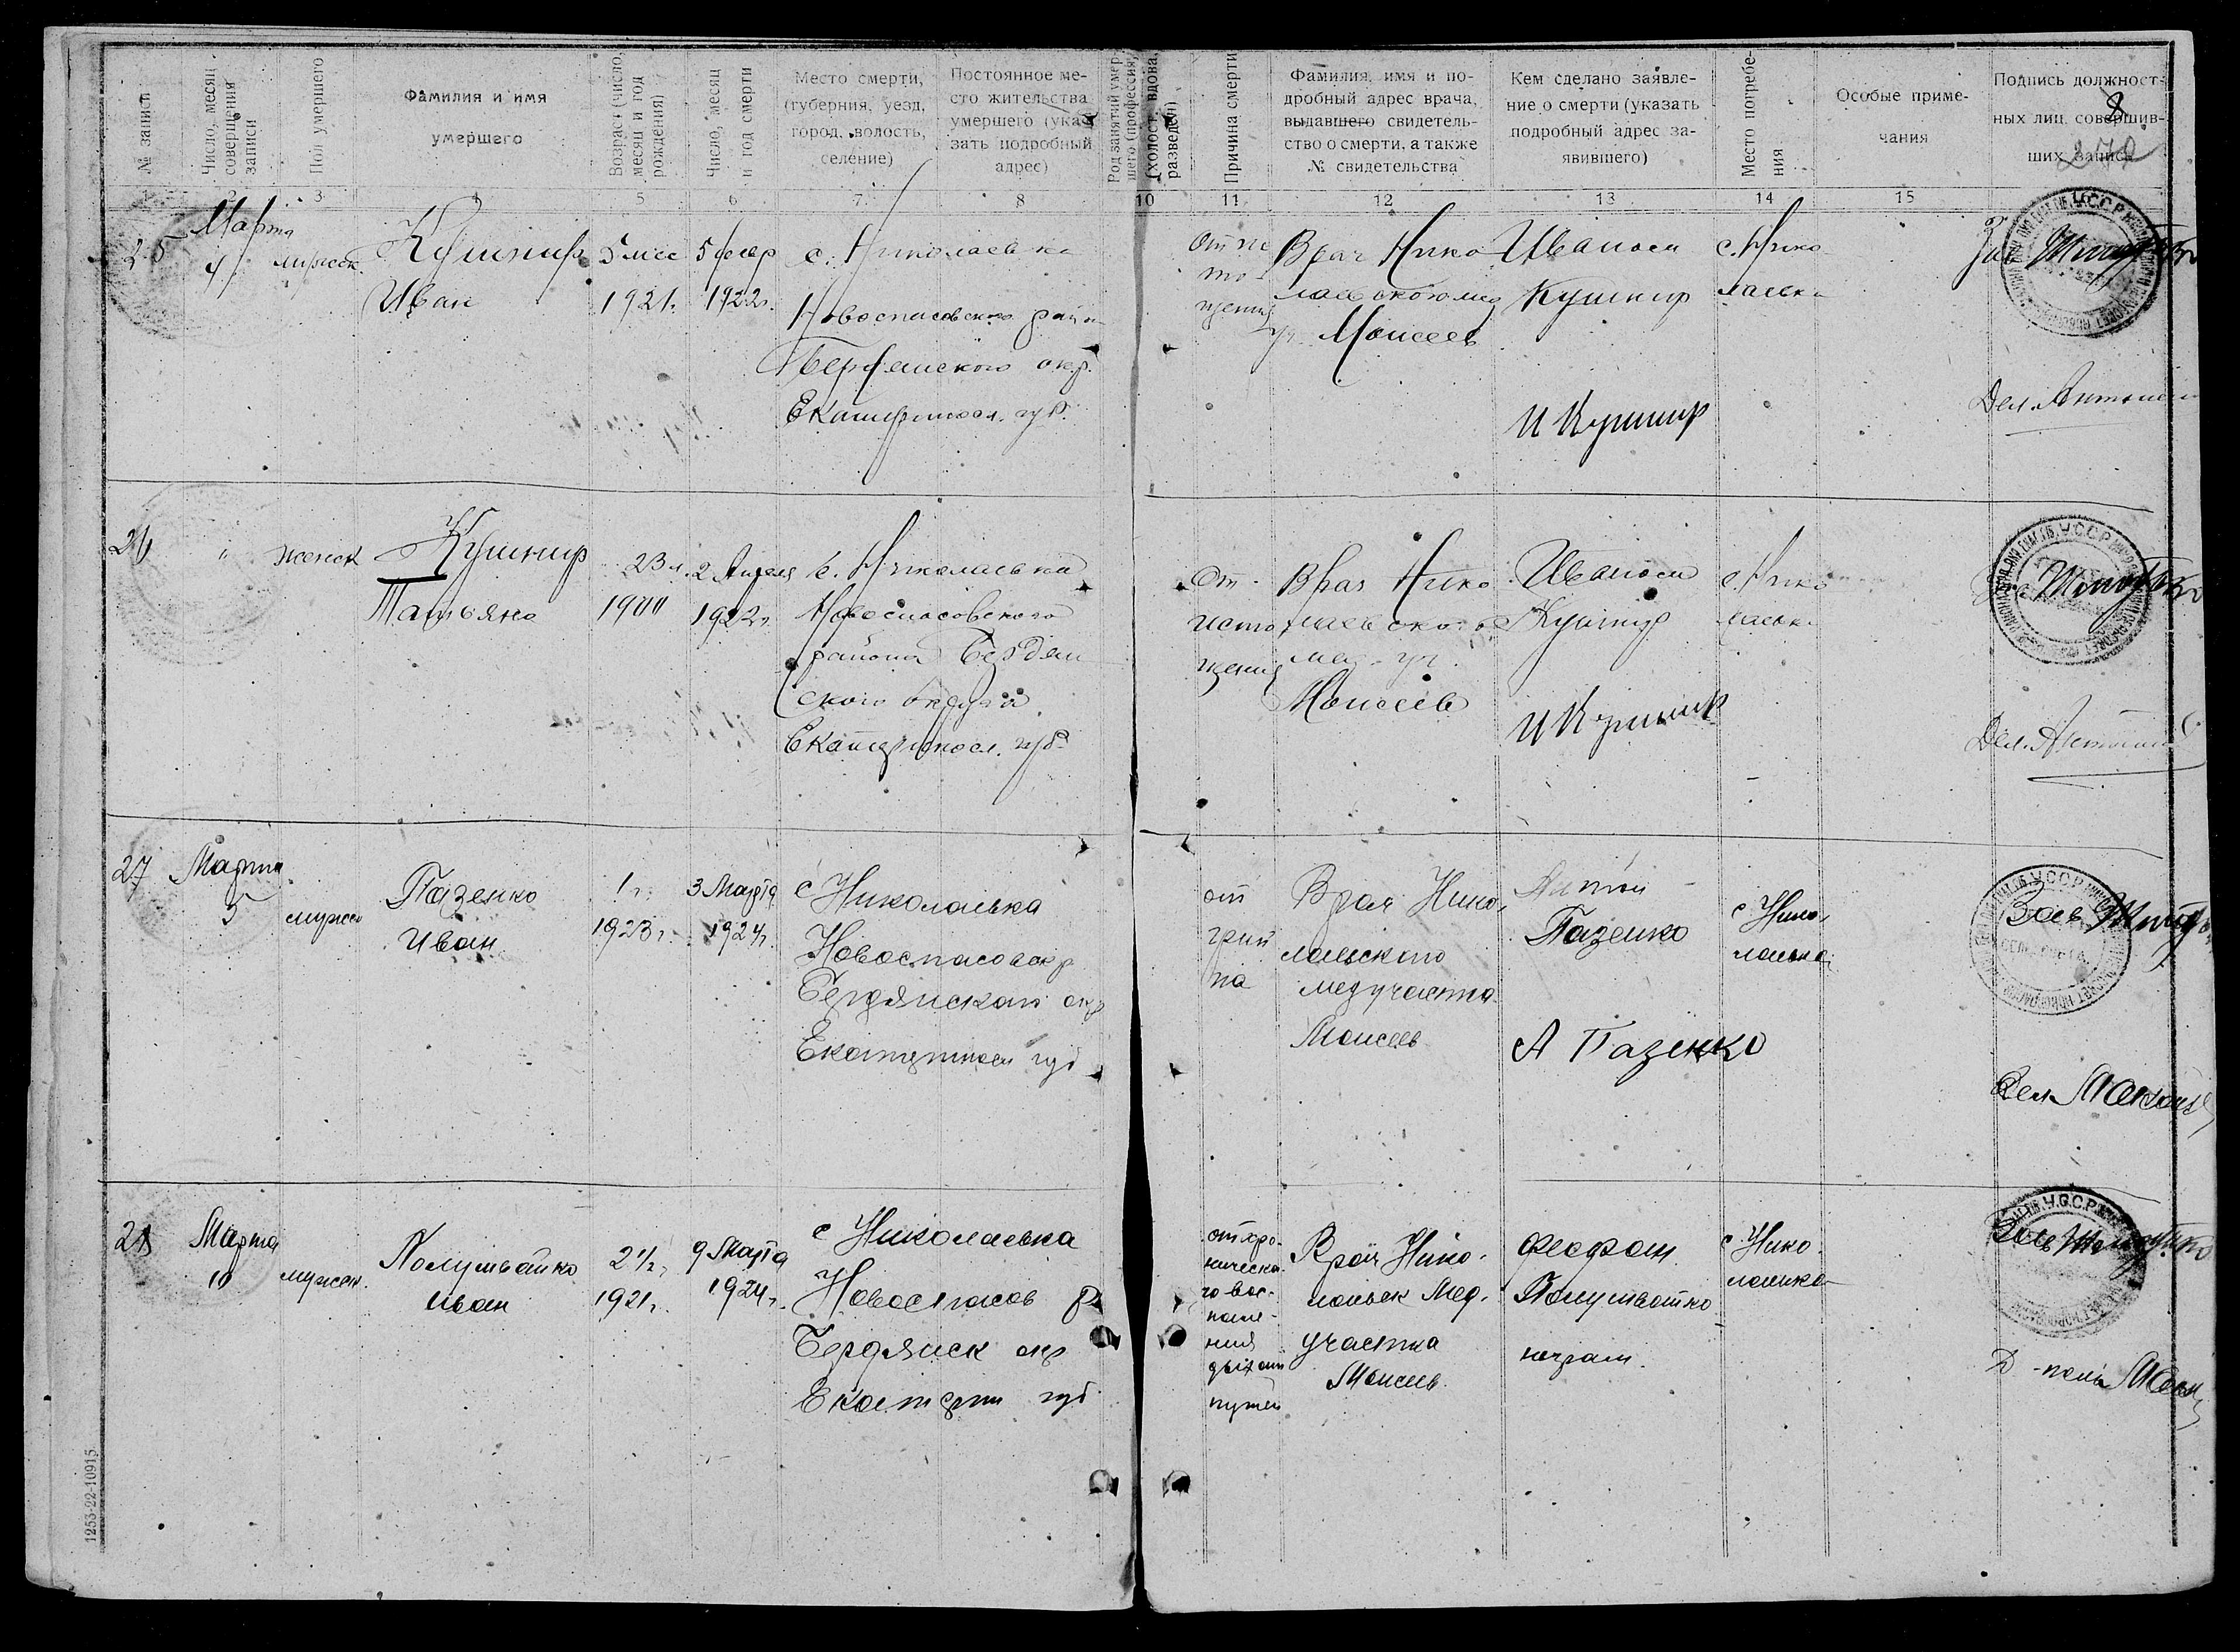 № записи
Число, месяц совершения записи
Пол умершего
Фамилия и имя
умершего
Возраст (число, месяц и год рождения)
Число, месяц и год смерти
Место смерти,
(губерния, уезд,
город, волость,
селение)
Постоянное ме-
сто жительства
умершего (ука-
зать подробный
адрес)
Род занятий умер-
шего (профессия)
(холост, вдова, разведен)
Причина смерти
Фамилия, имя и по-
дробный адрес врача,
выдавшего свидетель-
ство о смерти, а также
№ свидетельства
Кем сделано заявле-
ние о смерти (указать
подробный адрес за-
явившего)
Место погребе-
ния
Особые приме-
чания
Подпись должност-
ных лиц, совершив-
ших запись
2 3 5 6 7 8 10 11 12 13 14 15
25
Марта
4
мужск.
Кушнир
Иван
5 мес
1921г.
5 февр
1922г.
с. Николаевка
Новоспасовского район
Бердянского окр.
Екатериносл. губ.
От ис
то-
щения
Врач Нико
лаевского мед
уч. Моисеев
Иваном
Кушнир
И Кушнир
с. Нико
лаевка
Дел.
26
"
женск
Кушнир
Татьяна
23 л.
1900
2 Апреля
1922г.
с. Николаевка
Новоспасовского
района Бердян
ского округа
Екатериносл. губ.
От
исто
щения
Врач Нико
лаевского
мед. уч.
Моисеев
Иваном
Кушнир
И Кушнир
с. Нико
лаевка
Дел.
27
Марта
5
мужск
Пазенко
Иван
1 г.
1923г.
3 Марта
1924г.
с Николаевка
Новоспасов окр
Бердянского окр
Екатеринос губ
от
грип
па
Врач Нико
лаевского
медучастка
Моисеев
Антон
Пазенко
А Пазенко
с Нико
лаевка
Зав
Дел
28
Марта
10
мужск.
Полушватко
Иван
2 г.
1921г.
9 Марта
1924г.
с Николаевка
Новоспасов р
Бердянск окр
Екатерин губ
от хро-
ническо-
го вос-
пале-
ния
дыхат
путей
Врач Нико-
лаевск Мед.
участка
Моисеев
Феофан
Полушватко
неграм.
с Нико
лаевка
Зав
1253-22-10915